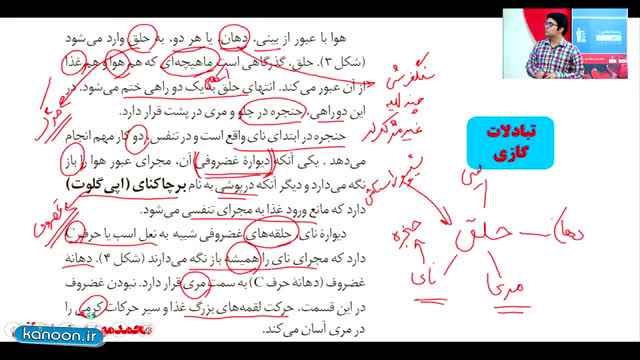 هوا با عبور از بینی، دهان، یا هر دو، به حلق وارد می‌شود
(شکل ۳). حلق، گذرگاهی است ماهیچه‌ای که هم هوا و هم غذا
از آن عبور می‌کند. انتهای حلق به یک دوراهی ختم می‌شود. در
این دوراهی، حنجره در جلو و مری در پشت قرار دارد.
حنجره در ابتدای نای واقع است و در تنفس، دو کار مهم انجام
می‌دهد. یکی آنکه دیوارهٔ غضروفی آن، مجرای عبور هوا را باز
نگه می‌دارد و دیگر آنکه درپوشی به نام برچاکنای (اپی‌گلوت)
دارد که مانع ورود غذا به مجرای تنفسی می‌شود.
دیوارهٔ نای، حلقه‌های غضروفی شبیه به نعل اسب یا حرف C
دارد که مجرای نای را همیشه باز نگه می‌دارند (شکل ۴). دهانهٔ
غضروف (دهانهٔ حرف C) به سمت مری قرار دارد. نبودن غضروف
در این قسمت، حرکت لقمه‌های بزرگ غذا و سیر حرکات کرمی را
در مری آسان می‌کند.
تبادلات
گازی
سنگفرشی
چند لایه
بینی
دهان
حلق
حنجره
نای
مری
غضروف
kanoon.ir